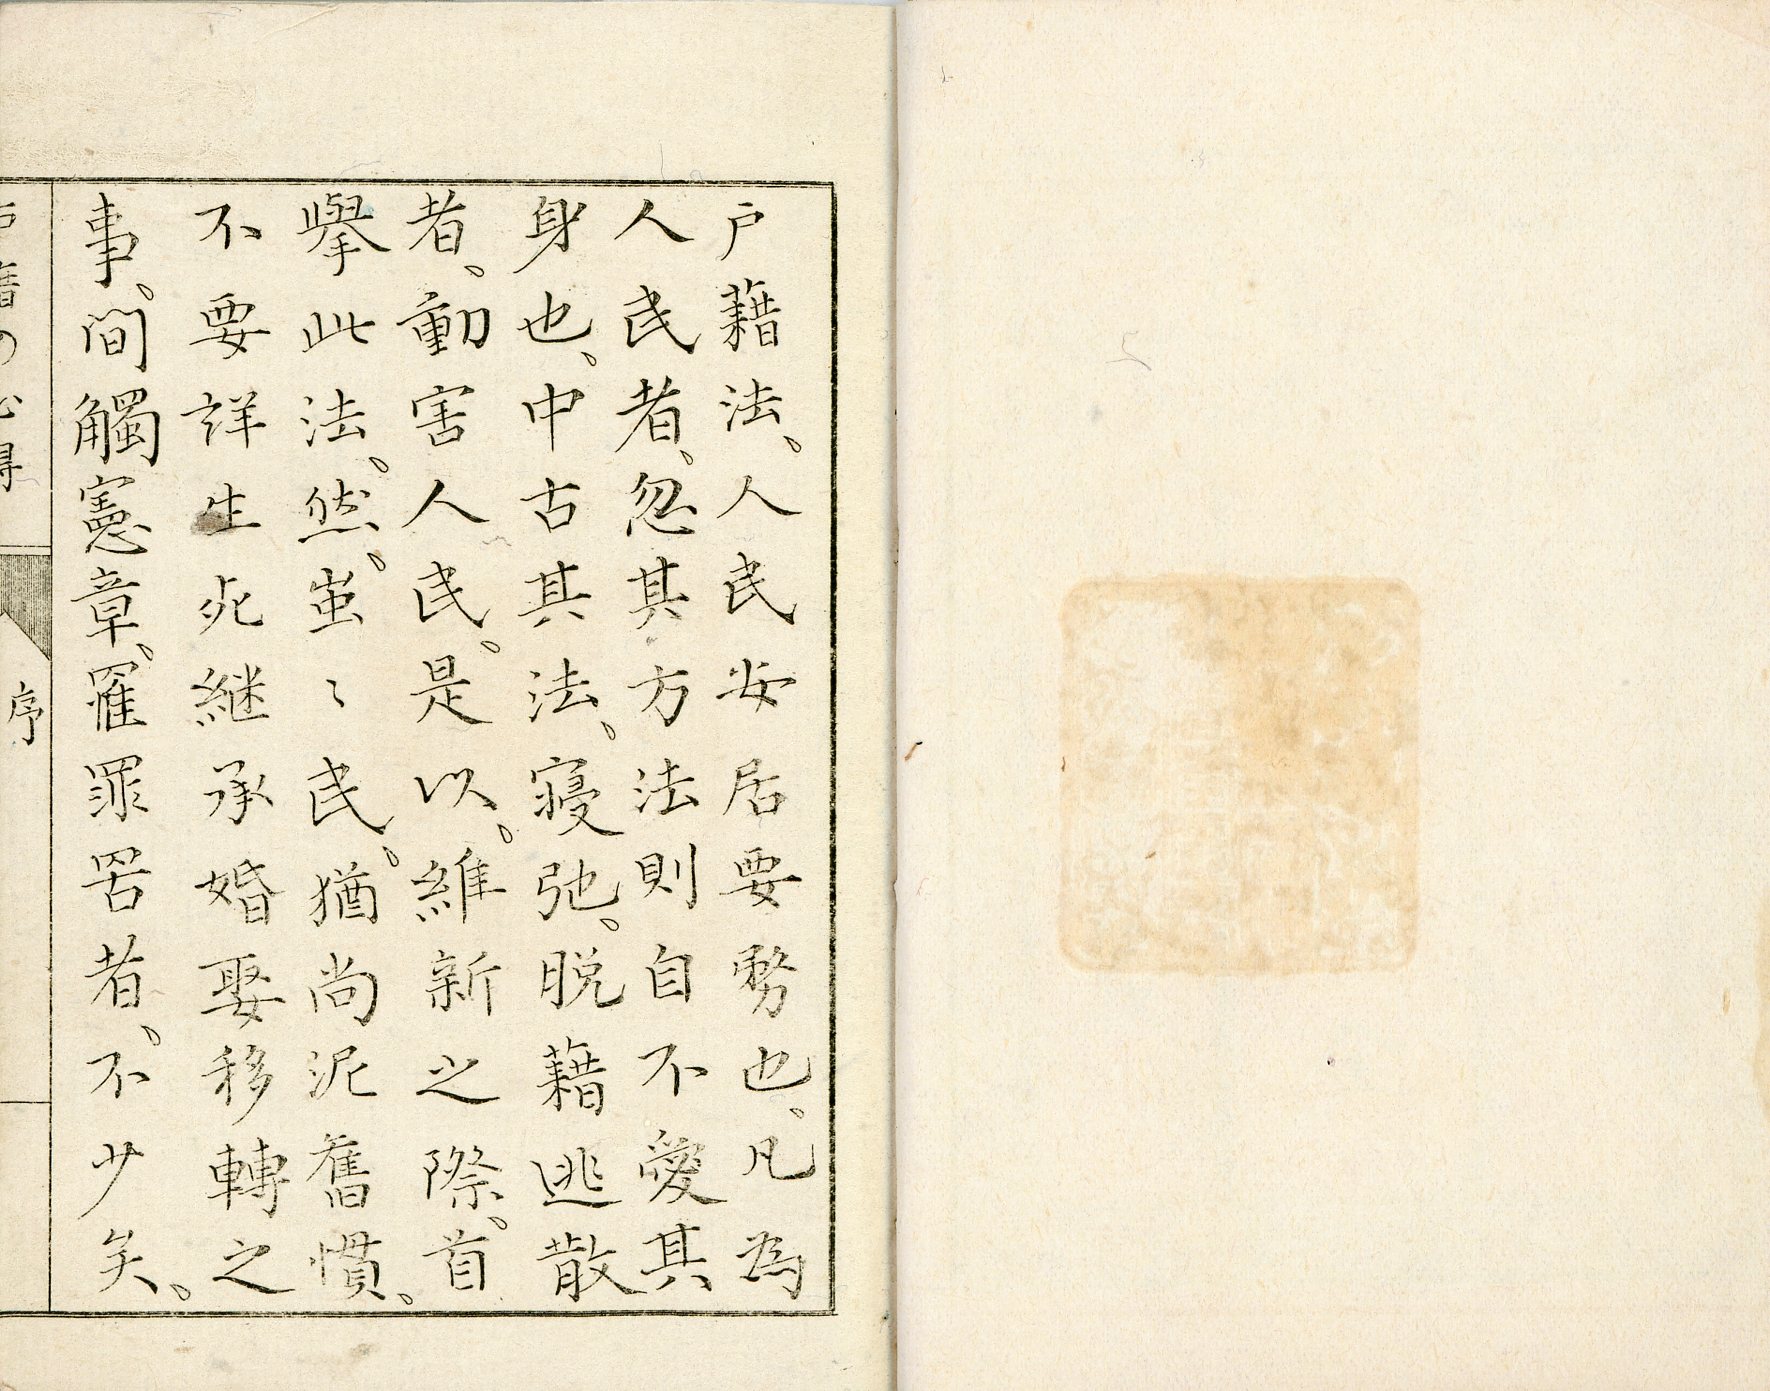 戸藉法、人民安居要務也、凡為
人民者、忽其方法則自不愛其
身也、中古其法、寝弛、脱藉逃散
者、動害人民、是以、維新之際、首
擧此法、然、蚩〻民、猶尚泥舊慣、
不要詳生死継承婚娶移轉之
事、間觸憲章、罹罪罟者、不少矣、
序